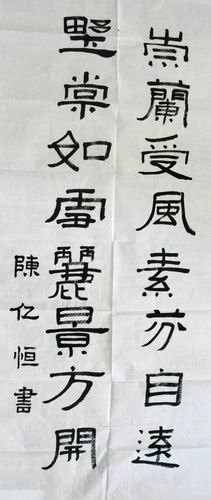 崇蘭受風素芬自遠
墅棠如雪麗景方開
陳仁恒書